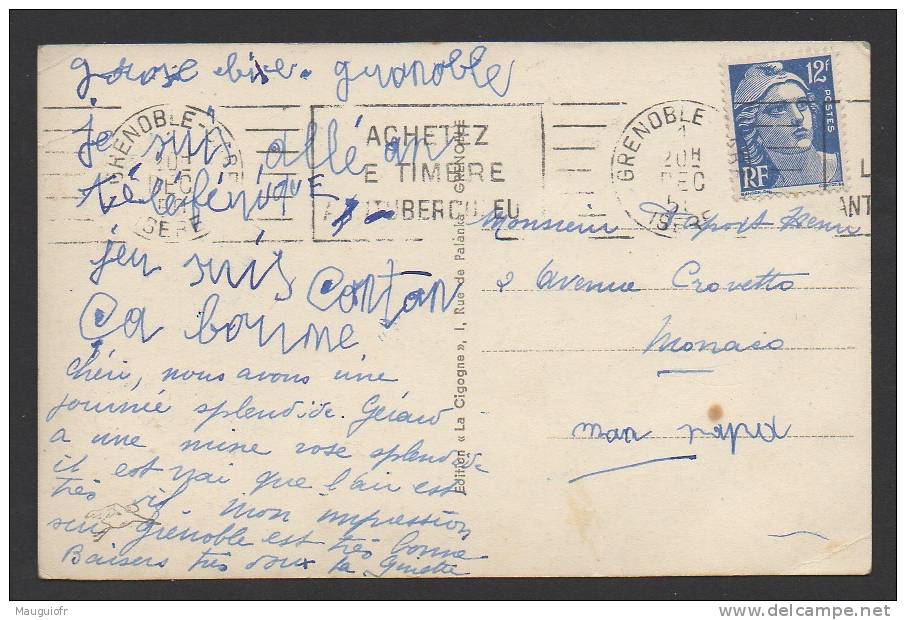 grose bise grenoble
je suis allé an
téléférique
jeu suis contan
Ça bonne
Chéri, nous avons une
journée splendide. Gérard
a une mine rose splendide
il est vrai que l'air est
très vif Mon impression
sur Grenoble est très bonne
Baisers très doux ta Ginette
GRENOBLE-GARE
20H
DEC
ISERE
ACHETEZ
E TIMBRE
ITUBERCULEU
GRENOBLE
1
20H
DEC
ISERE
12F
POSTES
RF
L
ANT
Edition « La Cigogne », 1, Rue de Palanka, GRENOBLE
Monsieur Henri
2 Avenue Crovetto
Monaco
mon papa
Mauguiofr
delcampe.net